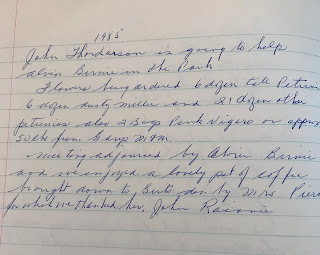 1985
John Thordarson is going to help
Alvin Birnie in the Park
Flowers being ordered 6 dozen tall Petunias
6 dozen dusty miller and 21 dozen other
petunias also 2 Bags Park Vigero or approx
50 lb from Camp M+M.
Meeting adjourned by Alvin Birnie
and we enjoyed a lovely pot of coffee
brought down to Bert's den by Mrs
for which we thanked her. John